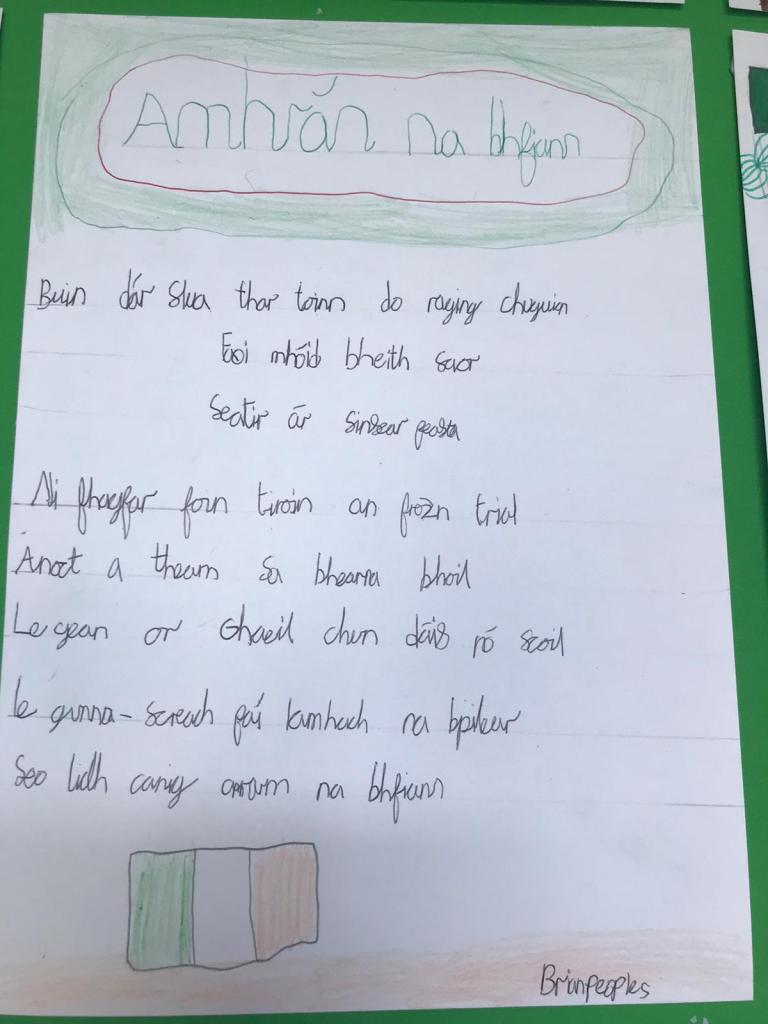 Amhrán na bhfiann
Buin dár Slua thar toinn do raging chuguin
Faoi mhóid bheith saor
Seatir ár sinsear feasta
Ni fhagfar foin tiroin an frozn trial
Anoct a theam sa bhearna bhoil
Le gean or Ghaeil chun dáis ró scoil
le gunna-screach faí lamhach na bpiléar
Seo lidh canig amhrm na bhfiann
Brianpeoples